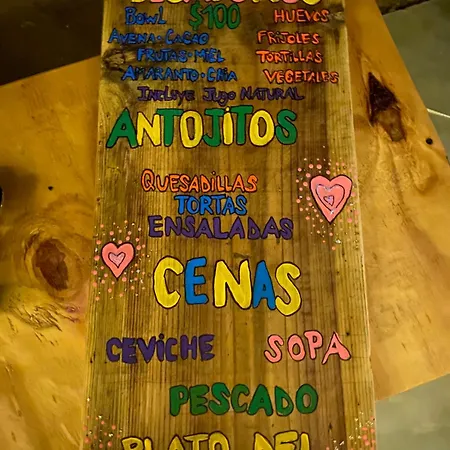 DESAYUNOS
BOWL $100 HUEVOS
AVENA·CACAO FRIJOLES
FRUTAS·MIEL TORTILLAS
AMARANTO·CHIA VEGETALES
INCLUYE JUGO NATURAL
ANTOJITOS
QUESADILLAS
TORTAS
ENSALADAS
CENAS
CEVICHE SOPA
PESCADO
PLATO DEL